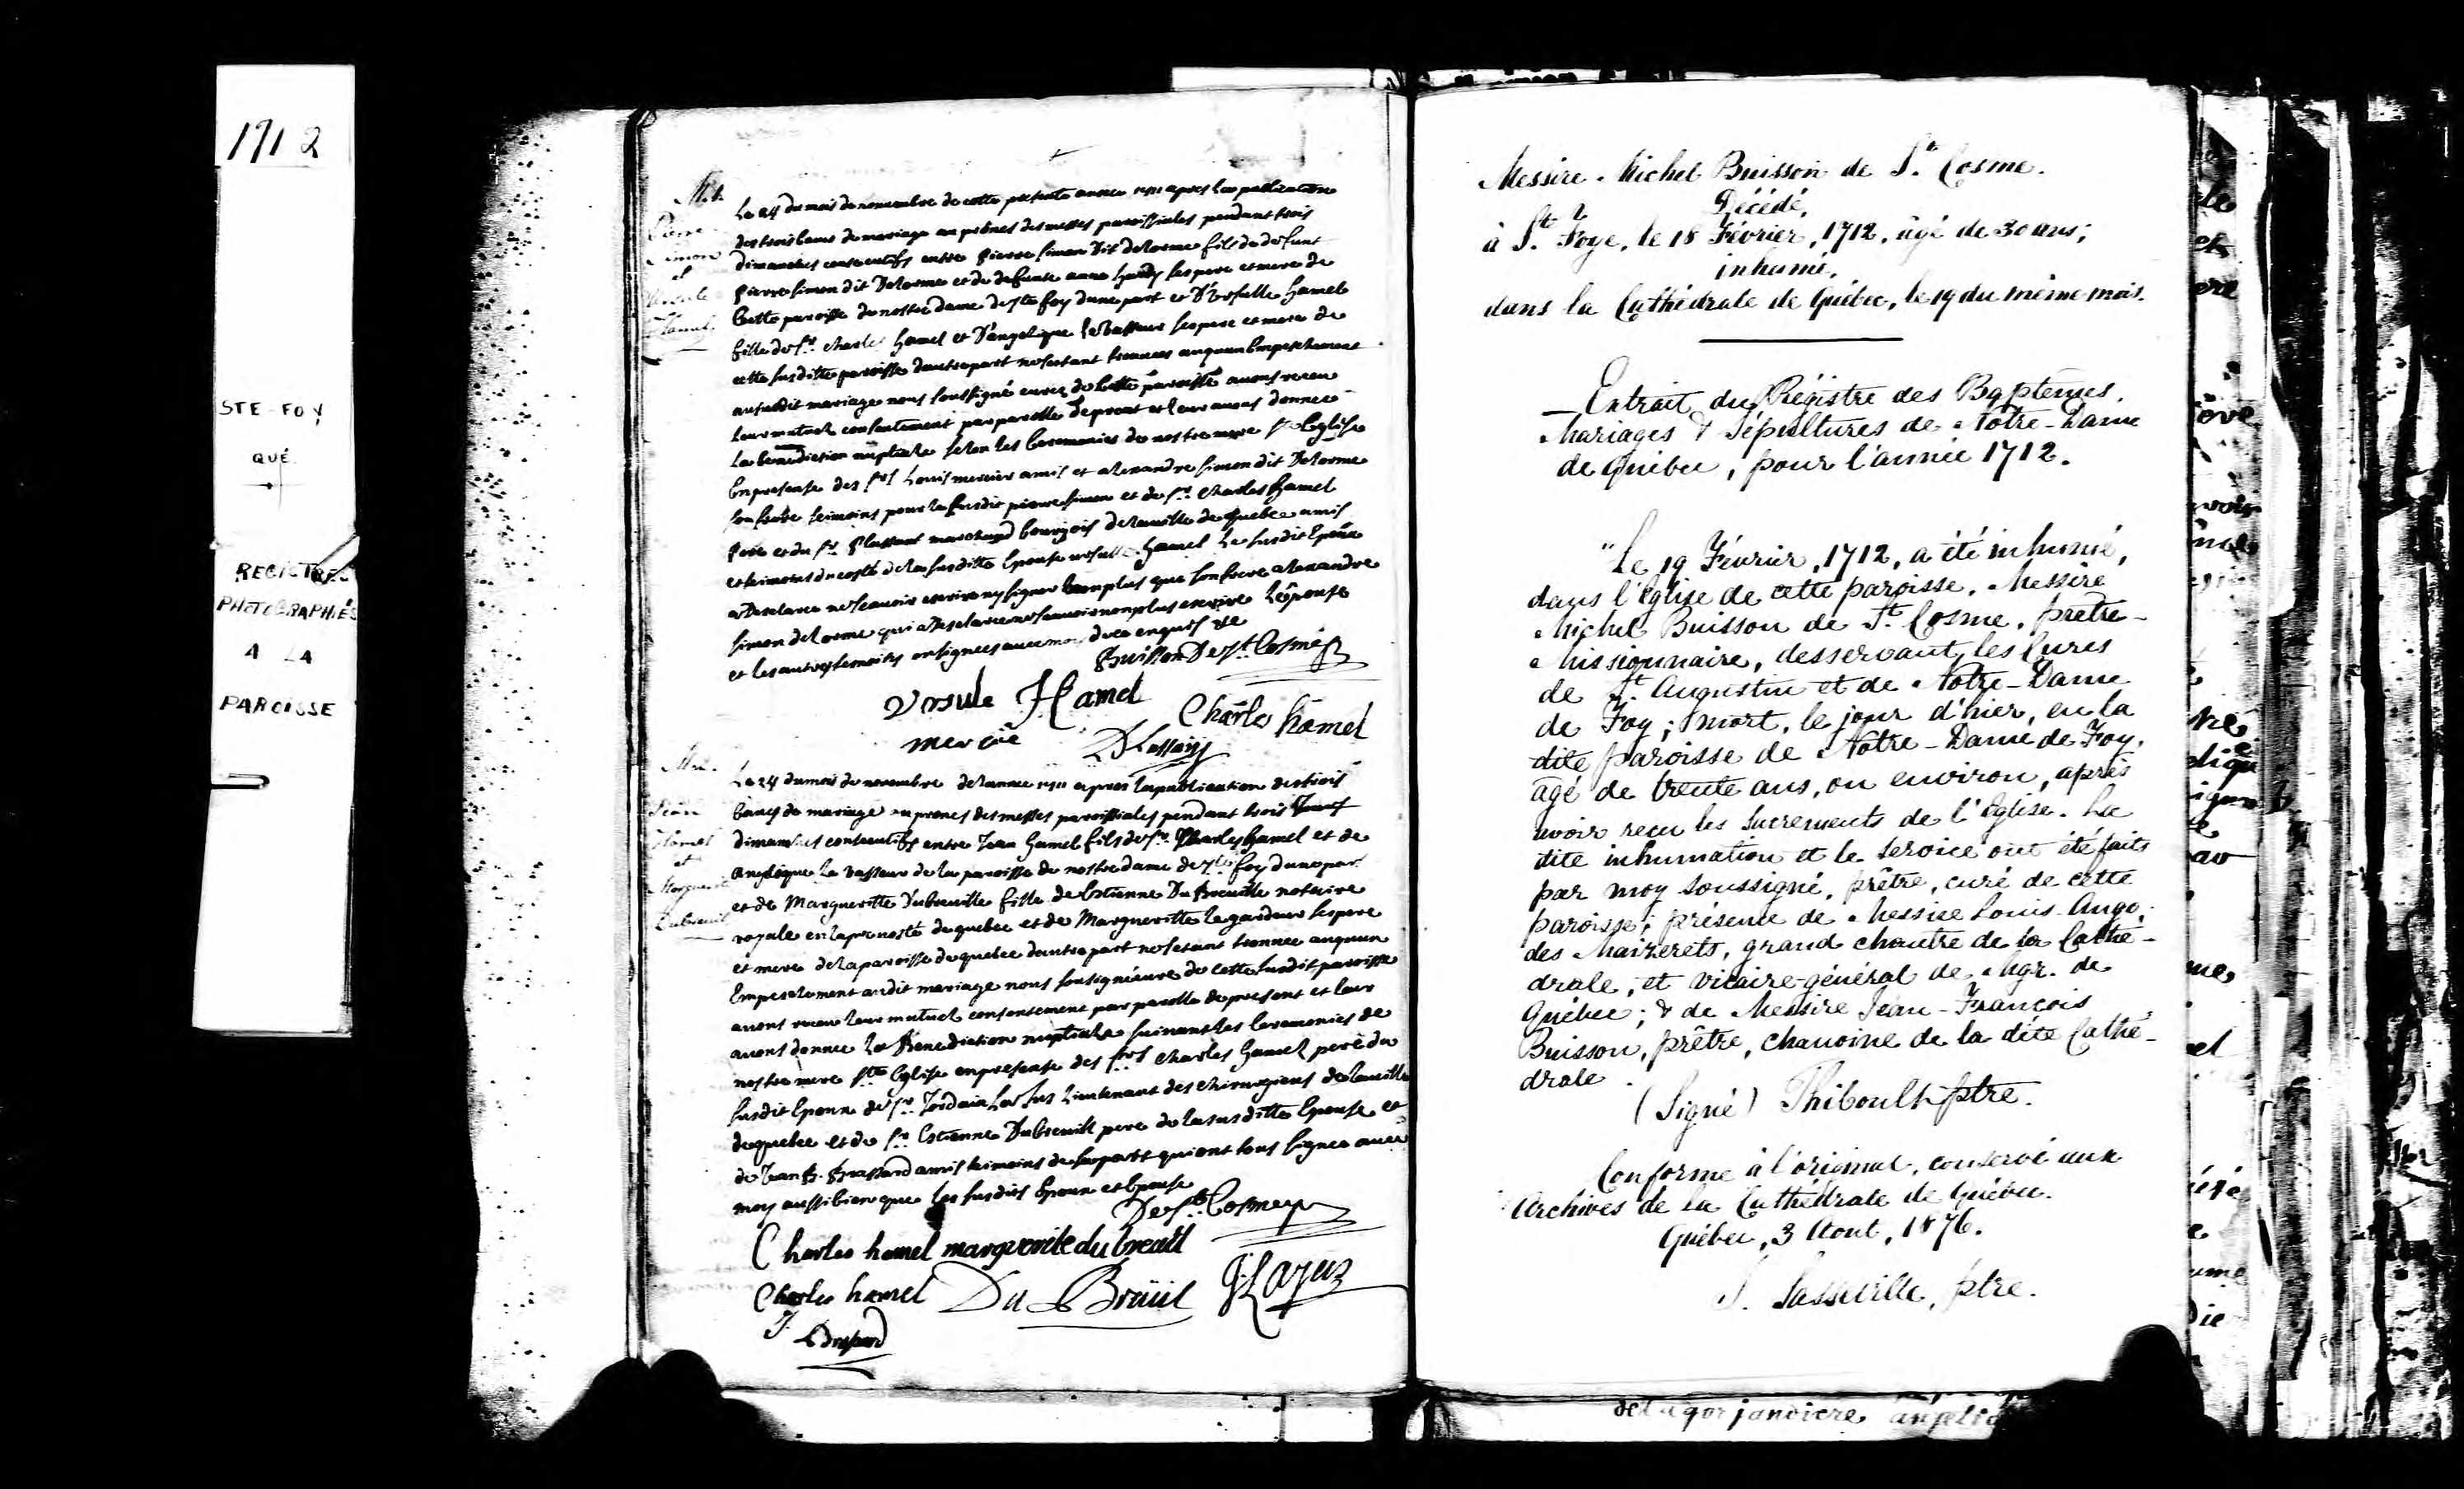 1712
STE-FOY
QUÉ.
REGISTRES
PHOTOGRAPHIÉS
A LA
PAROISSE
Mar.
Pierre
Simon
et
Ursule
Hamel
Le 24 du mois de novembre de cette presente annee 1711 apres la publication
des trois bans de mariage au prônes des messes paroissiales pendant trois
dimanches consecutifs entre pierre simon dit Delorme fils de defunt
pierre simon dit Delorme et de defunte anne hardy ses pere et mere de
cette paroisse de nostre dame de ste foy dune part et D'Ursulle hamel
fille de sr. charles hamel et D'angelique levasseur ses pere et mere de
cette susditte paroisse dautre part ne sestant trouvees auqun Empeschement
au susdit mariage nous soussigné curez de cette paroisse avons receu
leur mutuel consentement par parolle de present et leur avons donnee
La benediction nuptiale selon les ceremonies de nostre mere ste Eglise
En presense des srs Louis mercier amis et alexandre simon dit Delorme
son frere temoins pour le susdit pierre simon et de sr. charles hamel
pere et du sr. plassant marchand bourgois de la ville de quebec amis
et temoins du costé de la susditte Epouse ursulle hamel Le susdit Epoux
a Desclaree ne scavoir escrire ny signer non plus que son frere alexandre
simon delorme qui a Desclaree ne scavoir non plus escrire Lépouse
et les autres temoins on signees avec moy de ce enquis &c
Buisson De st. Cosme p
Ursule Hamel
Charle hamel
mercie
Mar.
Jean
Hamel
et
Marguerite
Dubreuil
Le 24 du mois de novembre de lannee 1711 apres la publication des trois
bancs de mariage au prones des messes paroissiales pendant trois
dimanches consecutifs entre Jean hamel fils de sr. Charles hamel et de
angelique le vasseur de la paroisse de nostre dame de ste foy dune part
et de Marguerite Dubreuille fille de Estienne Du Breuille notaire
royale en la prevosté de quebec et de Margueritte legardeur ses pere
et mere de la paroisse de quebec dautre part ne setant trouvee auqun
Empeschement audit mariage nous soussigné cure de cette susdit paroisse
avons receu leur mutuel consentement par parolle de present et leur
avons donnee La Benediction nuptialle suivant les ceremonies de
nostre mere ste Eglise en presense des srs charles hamel pere du
susdit Epoux de sr. Jordain Lajus Lieutenant des chirurgiens de la ville
de quebec et de sr. Estienne Dubreuill pere de la susditte Epouse et
de Jean B. Brassard amis temoins de sa part qui ont tous signee avec
moy aussi bien que les susdits Epoux et Epouse
De st. Cosme p
Charles hamel marguerite du breuil
Charles hamel Du Breüil GLajus
J. Brasard
Messire Michel Buisson de St. Cosme.
Décédé,
à Ste. Foye, le 18 Février, 1712, âgé de 30 ans;
inhumé,
dans la Cathédrale de Québec, le 19 du même mois.
Extrait du Régistre des Baptêmes,
Mariages & Sépultures de Notre-Dame
de Québec, pour l'année 1712.
"Le 19 Février, 1712, a été inhumé,
dans l'Eglise de cette paroisse, Messire
Michel Buisson de St. Cosme, prêtre-
Missionnaire, desservant les Cures
de St. Augustin et de Notre-Dame
de Foy; mort, le jour d'hier, en la
dite paroisse de Notre-Dame de Foy,
âgé de trente ans, ou environ, après
avoir reçu les Sacrements de l'Eglise. La
dite inhumation et le Service ont été faits
par moy soussigné, prêtre, curé de cette
paroisse; présence de Messire Louis Ango,
des Maizerets, grand chantre de la Cathé-
drale, et vicaire-général de Mgr. de
Québec; & de Messire Jean-François
Buisson, prêtre, chanoine de la dite Cathé-
drale.
(Signé) Thiboult ptre.
Conforme à l'original, conservé aux
Archives de la Cathédrale de Québec.
Québec, 3 Aout, 1876.
J. Sasseville, ptre.